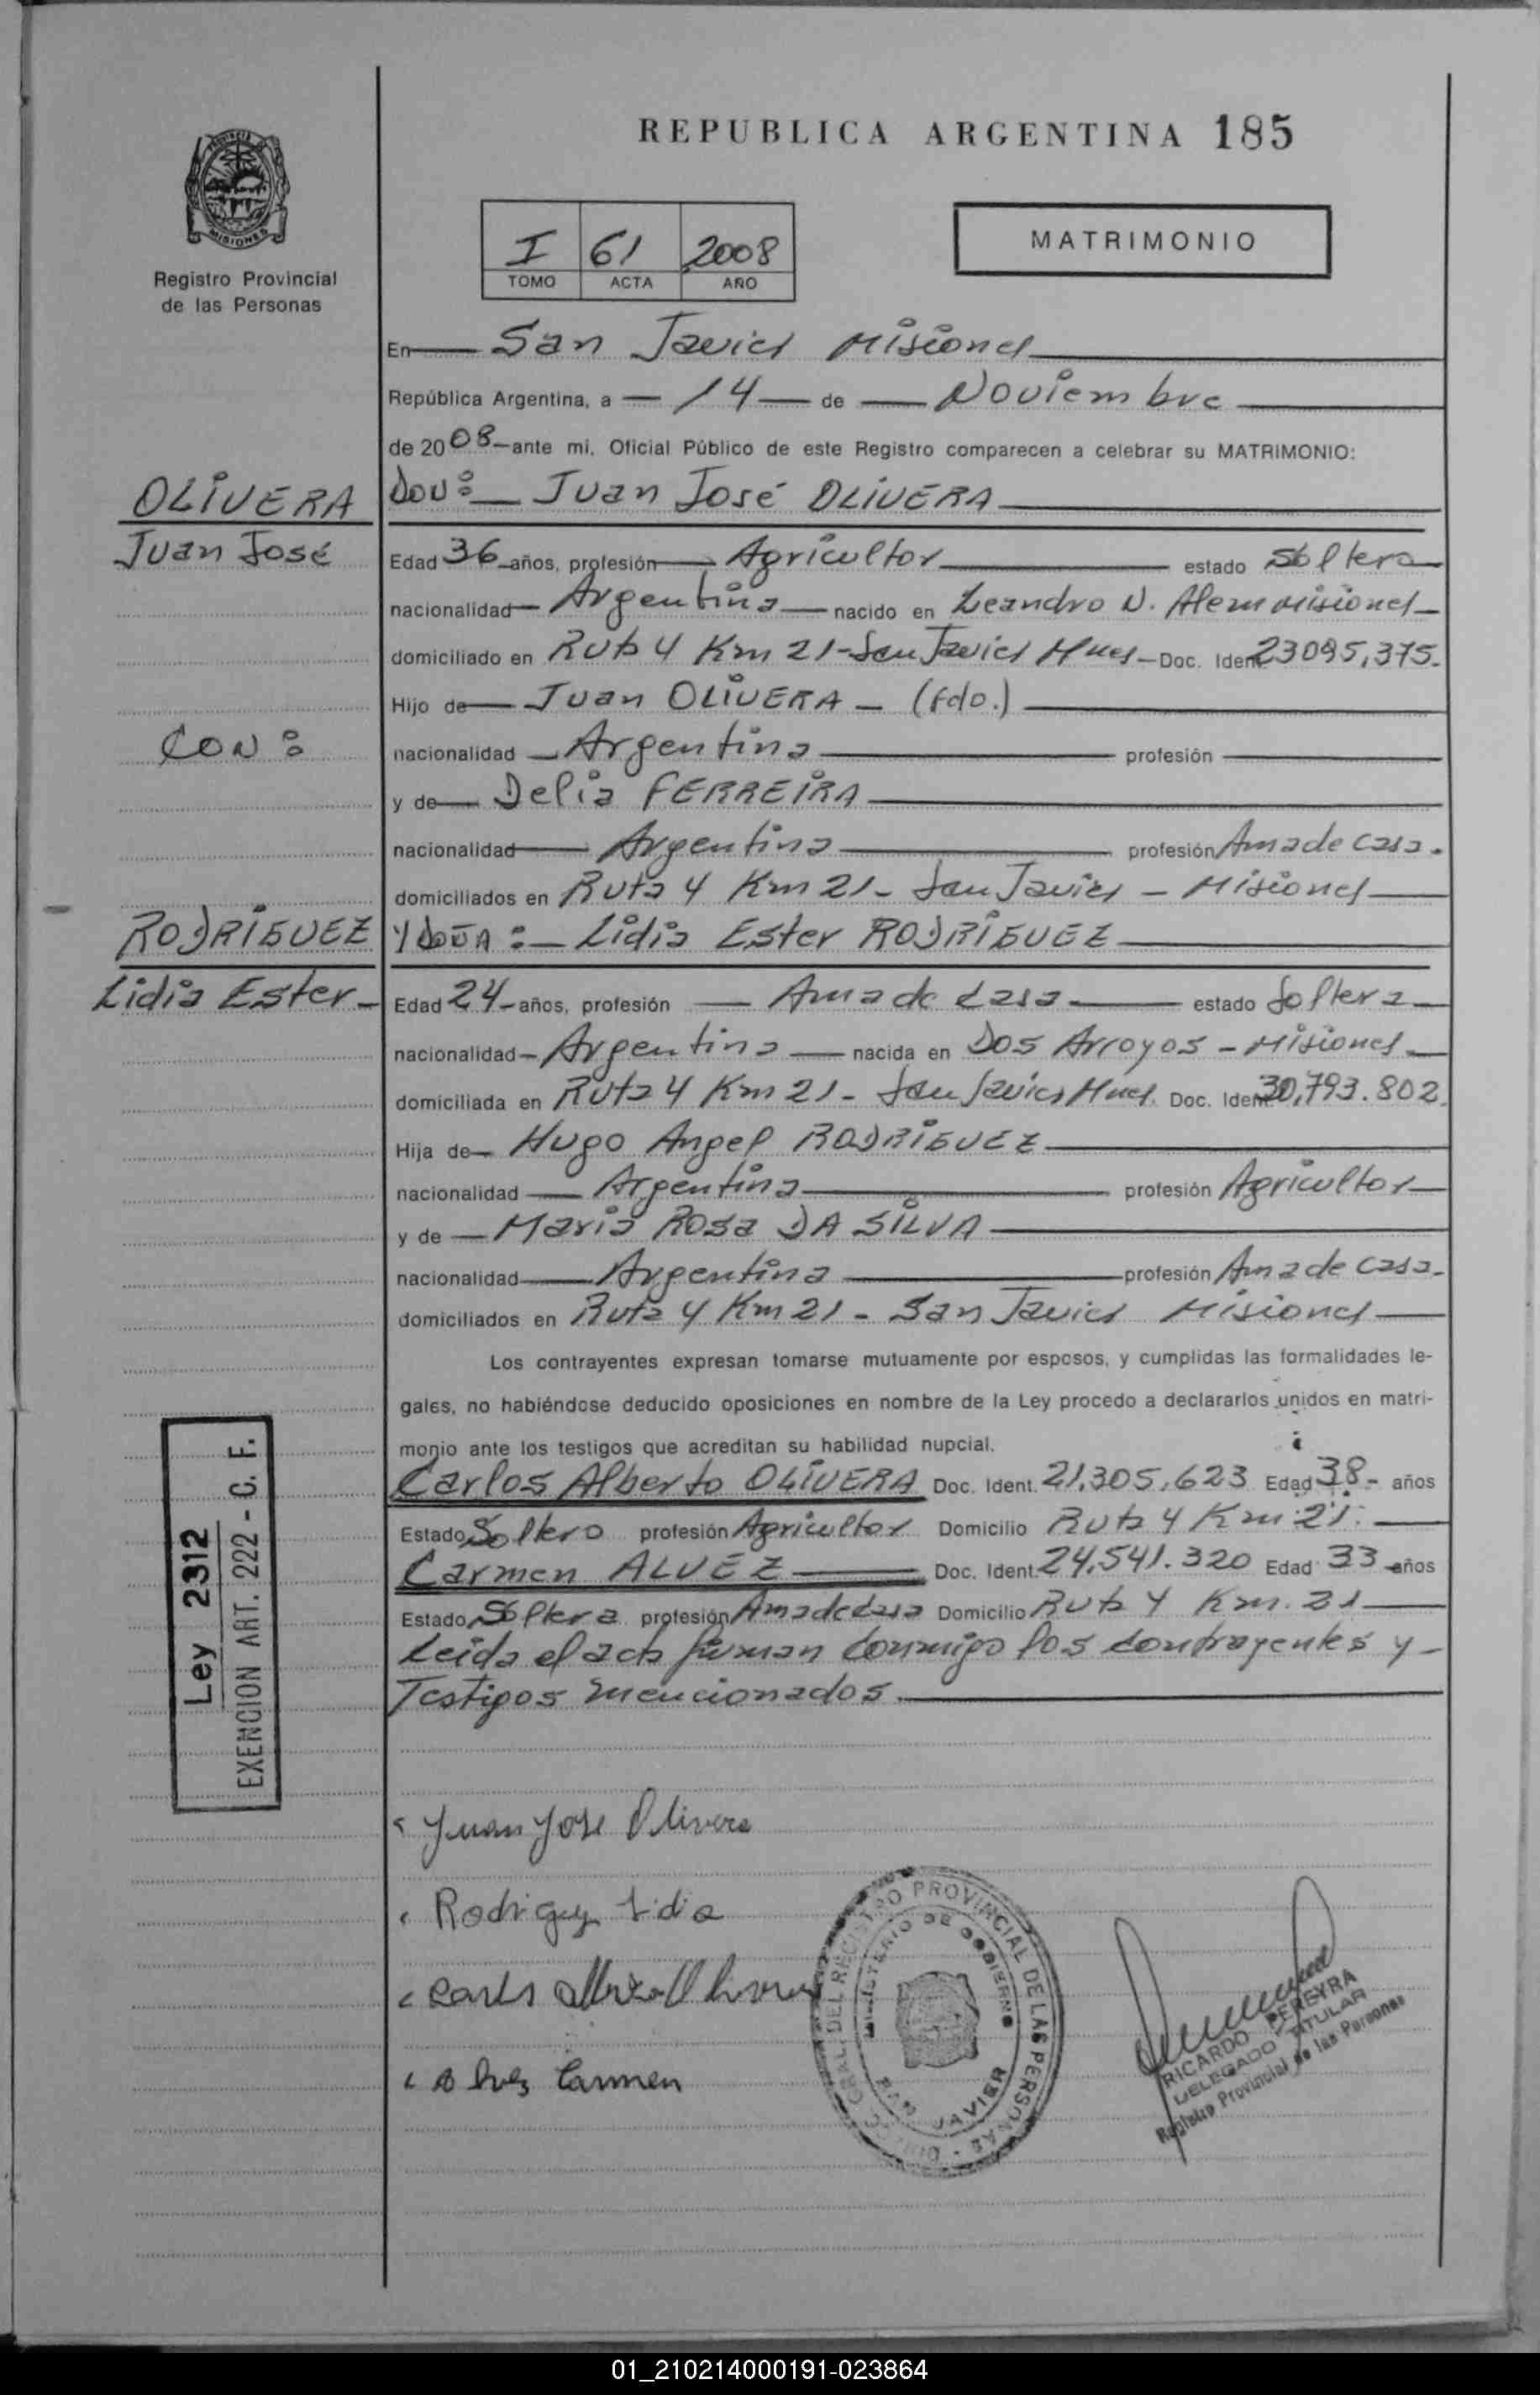 REPUBLICA ARGENTINA 185
PROVINCIA
MISIONES
Registro Provincial
de las Personas
I 61 2008
TOMO ACTA AÑO
MATRIMONIO
En San Javier Misiones
República Argentina, a 14 de Noviembre
de 2008 ante mi, Oficial Público de este Registro comparecen a celebrar su MATRIMONIO:
OLIVERA
Juan José
DON: Juan José OLIVERA
Edad 36 años, profesión Agricultor estado Soltero
nacionalidad Argentina nacido en Leandro N. Alem Misiones
domiciliado en Ruta 4 Km 21-San Javier Mnes-Doc. Ident. 23095,375.
Hijo de Juan OLIVERA - (fdo.)
CON:
nacionalidad Argentina profesión
y de Delia FERREIRA
nacionalidad Argentina profesión Ama de casa.
domiciliados en Ruta 4 Km 21- San Javier - Misiones
RODRIGUEZ
Lidia Ester-
Y DOÑA: Lidia Ester RODRIGUEZ
Edad 24 años, profesión Ama de casa estado Soltera
nacionalidad Argentina nacida en Dos Arroyos - Misiones
domiciliada en Ruta 4 Km 21- San Javier Mnes. Doc. Ident. 30,793.802.
Hija de Hugo Angel RODRIGUEZ
nacionalidad Argentina profesión Agricultor
y de Maria Rosa DA SILVA
nacionalidad Argentina profesión Ama de casa.
domiciliados en Ruta 4 Km 21 - San Javier Misiones
Los contrayentes expresan tomarse mutuamente por esposos, y cumplidas las formalidades le-
gales, no habiéndose deducido oposiciones en nombre de la Ley procedo a declararlos unidos en matri-
monio ante los testigos que acreditan su habilidad nupcial.
Carlos Alberto OLIVERA Doc. Ident. 21,305.623 Edad 38- años
Estado Soltero profesión Agricultor Domicilio Ruta 4 Km 21.
Carmen ALVEZ Doc. Ident. 24,541.320 Edad 33 años
Estado Soltera profesión Ama de casa Domicilio Ruta 4 Km. 21
Leida el acta firman conmigo los contrayentes y-
Testigos mencionados.
Ley 2312
EXENCION ART. 222 - C. F.
Juan Jose Olivera
Rodriguez Lidia
Carlos Alberto Olivera
Alvez Carmen
DEL REGISTRO PROVINCIAL DE LAS PERSONAS
MINISTERIO DE GOBIERNO
SAN JAVIER
RICARDO PEREYRA
DELEGADO TITULAR
Registro Provincial de las Personas
01_210214000191-023864